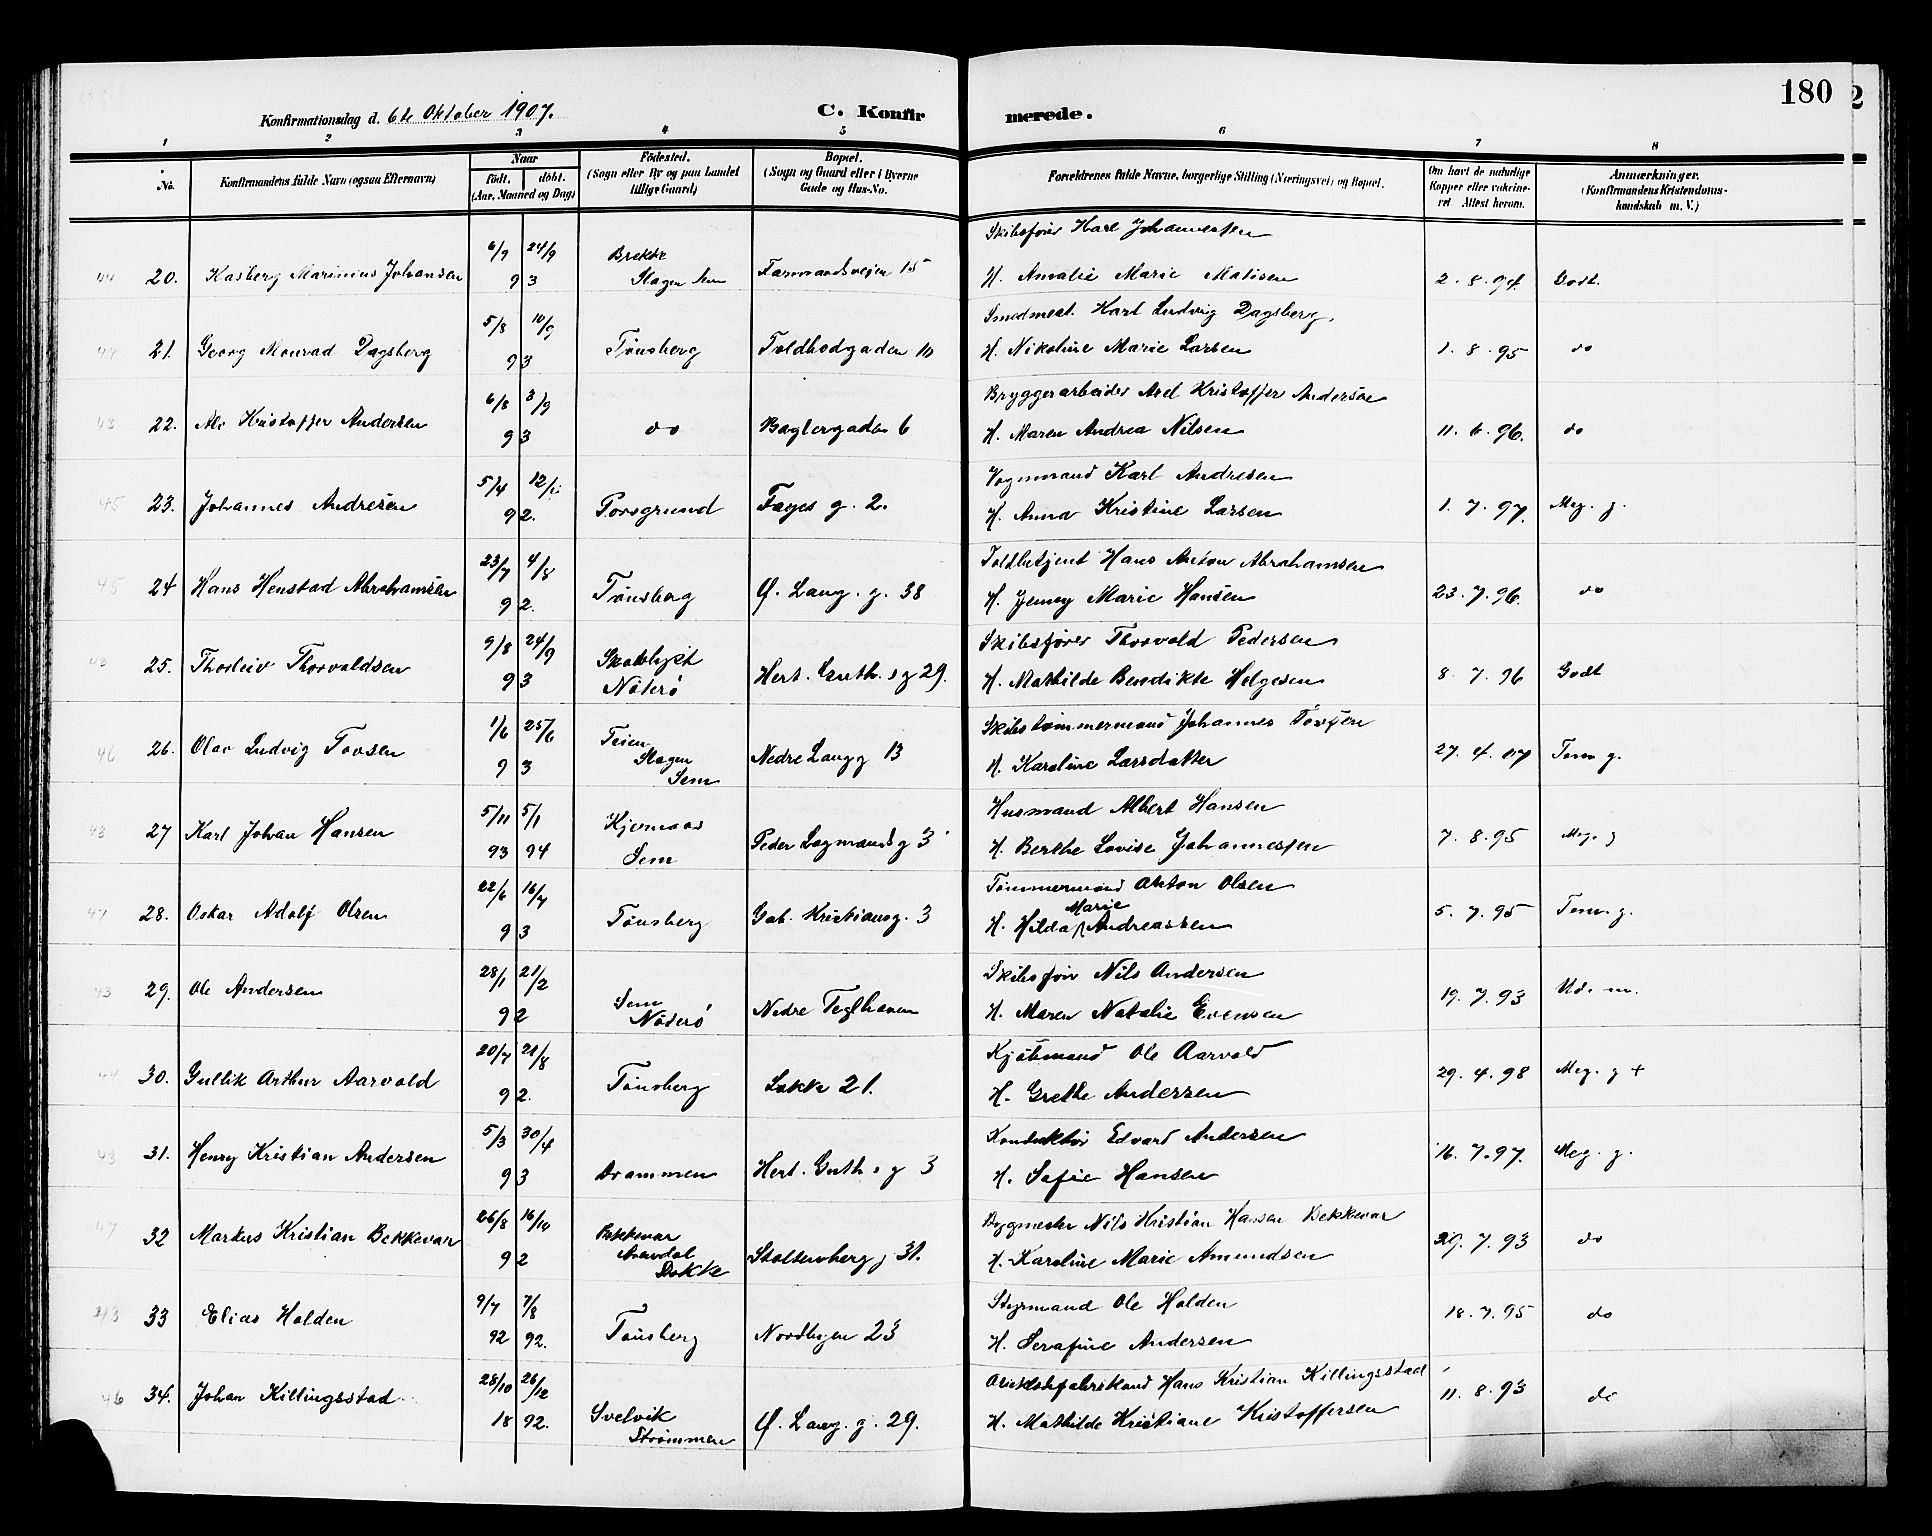 180
Konfirmationsdag d. 6te Oktober 1907.
C. Konfirmerede.
1 2 3 4 5 6 7 8
No. Konfirmandens fulde Navn (ogsaa Efternavn)
Naar
født. døbt.
(Aar, Maaned og Dag)
Fødested.
(Sogn eller By og paa Landet
tillige Gaard)
Bopæl.
(Sogn og Gaard eller i Byerne
Gade og Hus-No.
Forældrenes fulde Navne, borgerlige Stilling (Næringsvei) og Bopæl.
Om havt de naturlige
Kopper eller vakcine-
ret Attest herom.
Anmærkninger.
(Konfirmandens Kristendoms-
kundskab m. V.)
6/9 24/9 Brekke Skibsfører Karl Johannessen
44 20. Kasberg Marinius Johansen 93 Slagen Sem Farmandsveien 15 H. Amalie Marie Matisen 2.8.94 Godt.
5/8 10/9 Smedmest. Karl Ludvig Dagsberg,
44 21. Georg Monrad Dagsberg 93 Tønsberg Toldbodgaden 10 H. Nikoline Marie Larsen 1.8.95 do
6/8 3/9 Bryggerarbeider Axel Kristoffer Andersen
43 22. Kristoffer Andersen 93 do Baglergaden 6 H. Maren Andrea Nilsen 11.6.96. do
5/4 12/ Vognmand Karl Andresen
45 23. Johannes Andresen 92. Porsgrund Fayes g. 2. H. Anna Kristine Larsen 1.7.97. Meg. g.
23/7 4/8 Toldbetjent Hans Anton Abrahamsen
45 24 Hans Henstad Abrahamsen 92. Tønsberg Ø. Lang. g. 38 H. Jenny Marie Hansen 23.7.96. do
9/8 24/9 Skibsfører Thorvald Pedersen
43 25. Thorleiv Thorvaldsen 93 Nøterø Hert. Guth. s g 29. H. Mathilde Bendikte Helgesen 8.7.96 Godt
1/6 25/6 Teien Skibstømmermand Johannes
46 26. Olav Ludvig Tovsen 93 Slagen Sem Nedre Langg 13 H. Karoline Larsdatter 27.4.07 Tem g.
5/11 5/1 Husmand Albert Hansen
43 27 Karl Johan Hansen 93 94 Sem Peder Lagmandsg 3 H. Berthe Lovise Johannessen 7.8.95 Meg. g
22/6 16/7 Tømmermand Anton Olsen
47 28. Oskar Adolf Olsen 93 Tønsberg Gab. Kristiansg. 3 H. Hilda Marie Andreassen 5.7.95 Tem. g.
28/1 21/2 Skibsfør Nils Andersen
43 29. Ole Andersen 92 Sem Nøterø Nedre Teglhaven H. Maren Natalie Evensen 19.7.93 Ud. m.
20/7 21/8 Kjøbmand Ole Aarvold
44 30. Gullik Arthur Aarvold 92. Tønsberg Løkke 21. H. Grethe Andersen 29.4.98 Meg. g +
5/3 30/4 Konduktør Edvard Andersen
43 31. Henry Kristian Andersen 93 Drammen Hert. Guth. s g 3 H. Sofie Hansen 16.7.97. Meg. g.
26/8 16/10 Bekkevar Bygmester Nils Kristian Hansen Bekkevar
47 32 Markus Kristian Bekkevar 92 Stoltenberg g 31. H. Karoline Marie Amundsen 29.7.93 do
9/7 7/8 Styrmand Ole Holden
43 33 Elias Holden 92 92. Tønsberg Nordbyen 23 H. Serafine Andersen 18.7.95 do
28/10 26/12 Hans Kristian Killingsstad
46 34. Johan Killingsstad 18 92. Svelvik Strømmen Ø. Lang. g. 29. H. Mathilde Kristiane Kristoffersen 11.8.93 do